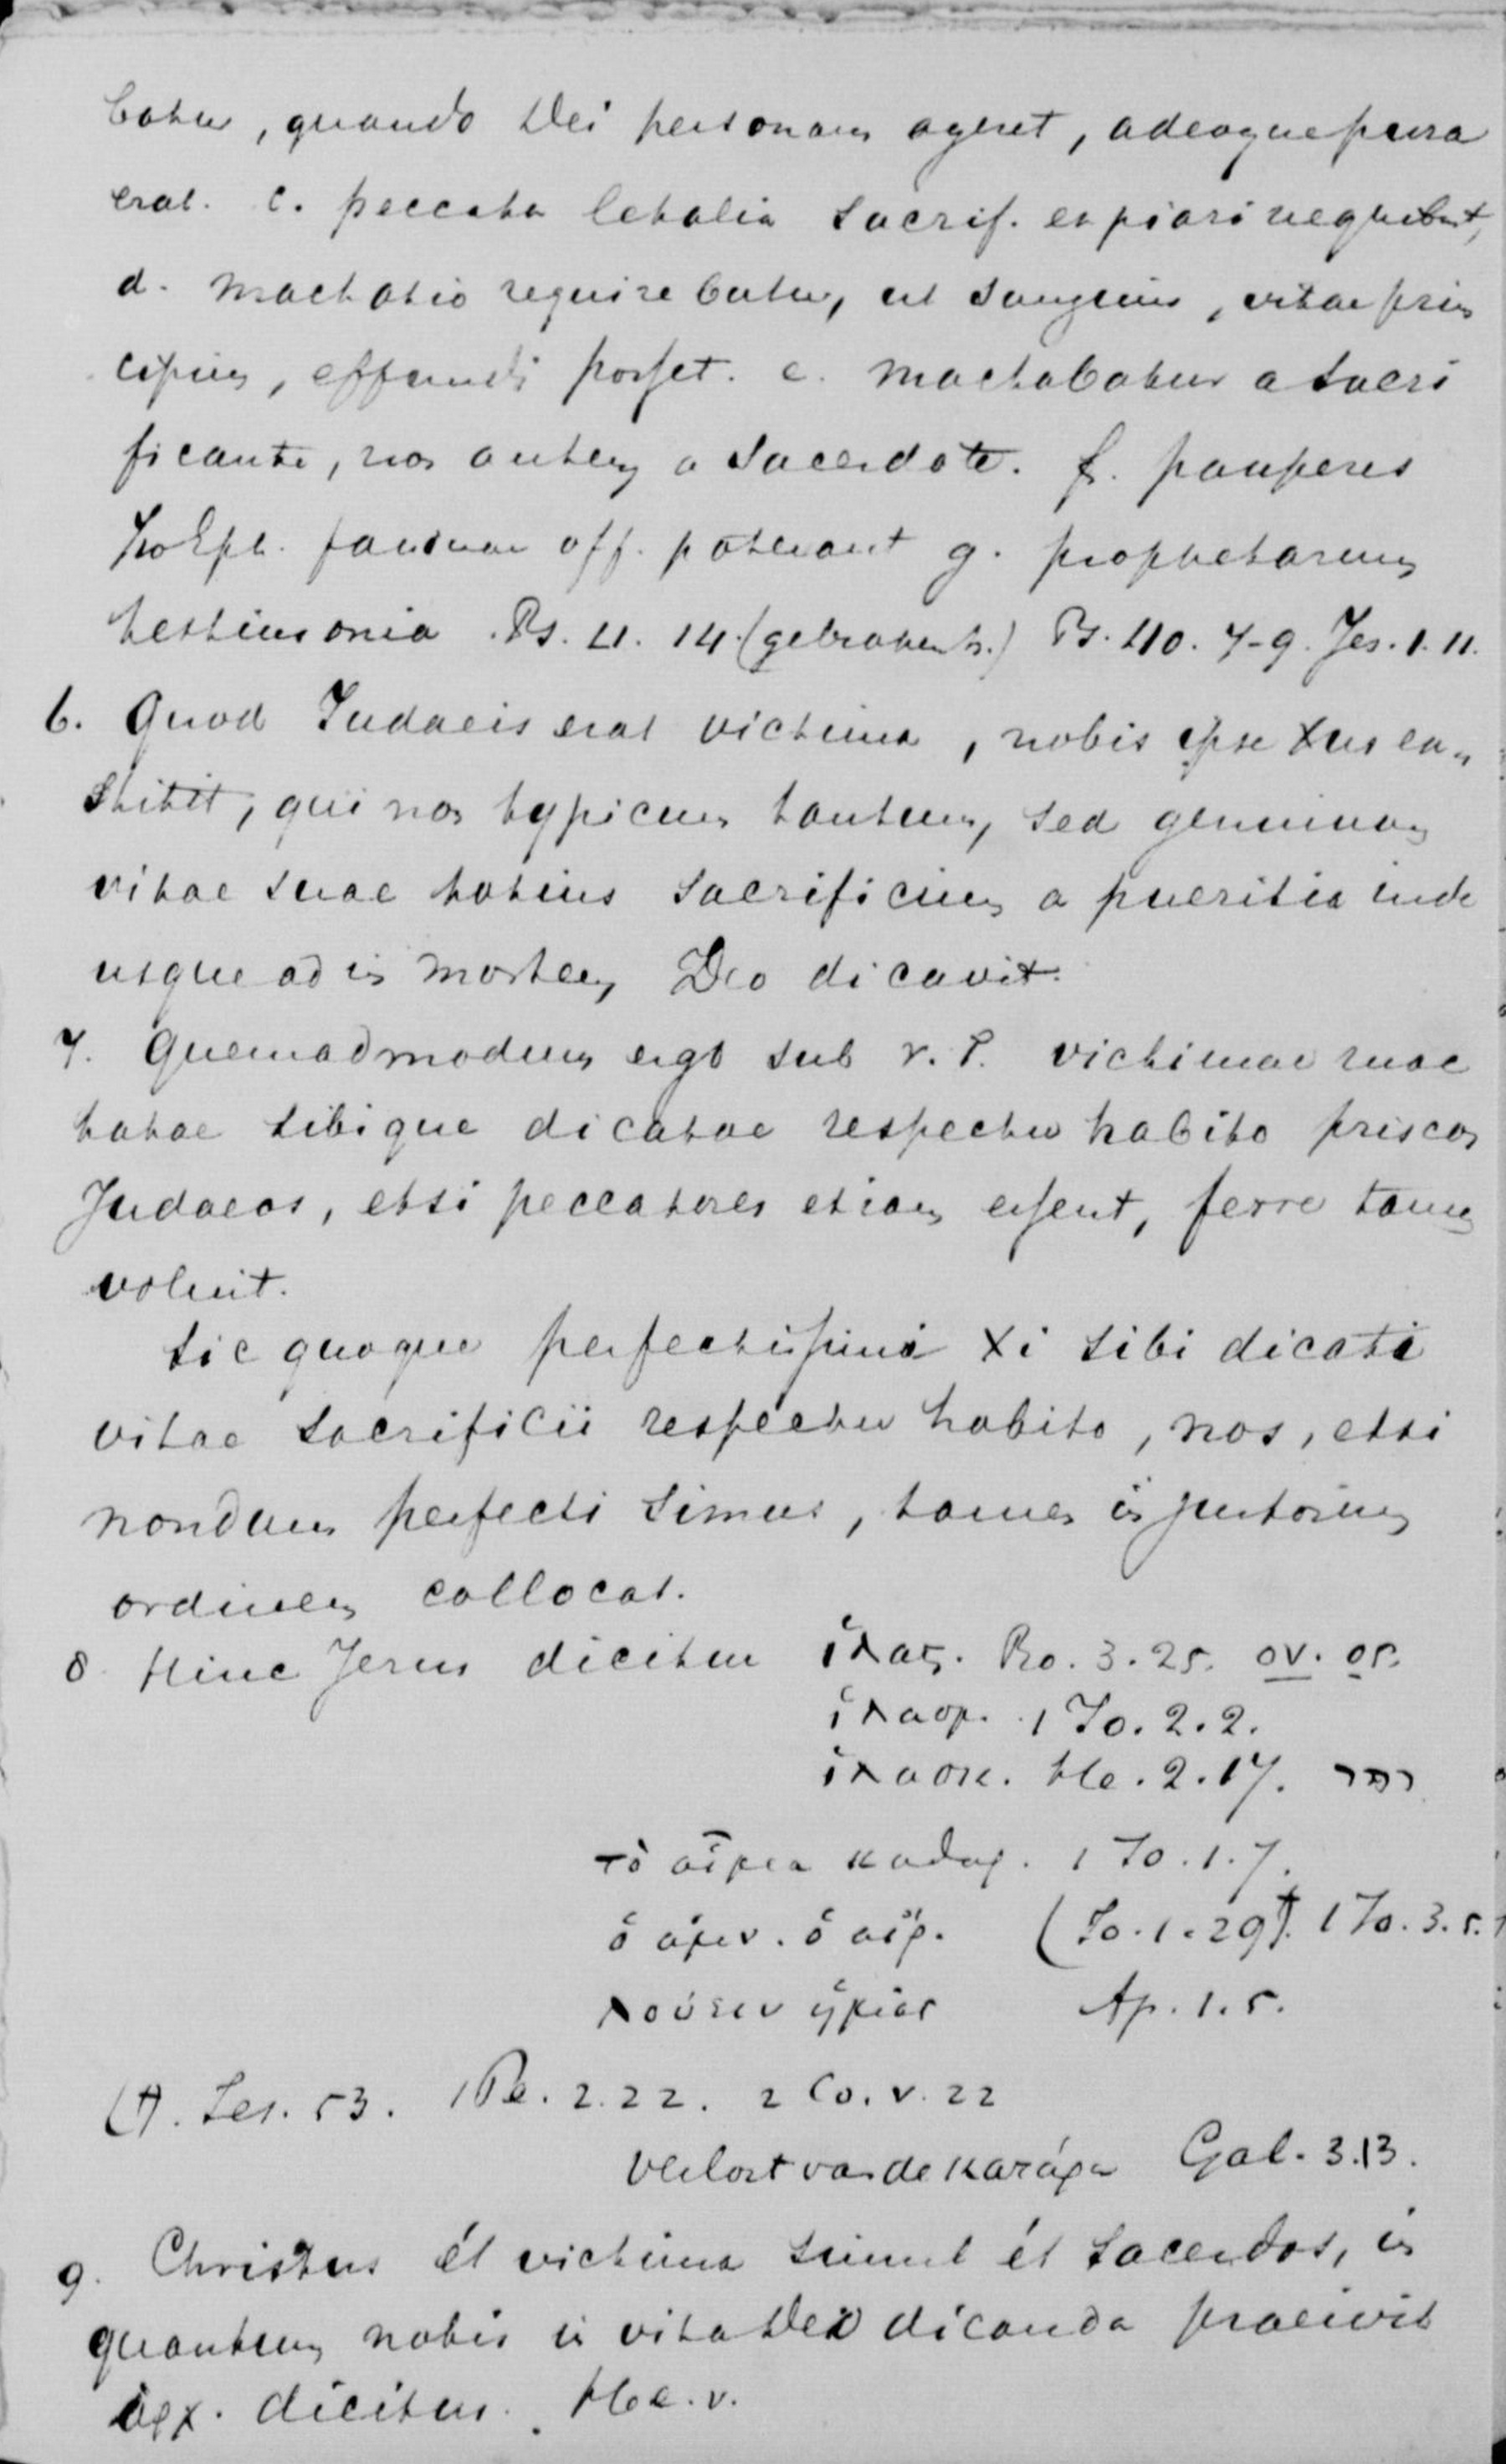 batur, quando Dei personam ageret, adeoque pura
erat. c. peccata letalia sacrif. expiari nequibant,
d. mactatio requirebatur, ut sanguis, vitae prin
cipium, effundi posset. e. mactabatur a sacri
ficante, non autem a sacerdote. f. pauperes
farinae off. poterant g. prophetarum
testimonia. Ps. 4. 14. Ps. 40. 7-9. Jes. 1. 11.
6. Quod Judaeis erat victima, nobis ipse Xus ex„
stitit, qui non typicum tantum, sed genuinum
vitae suae totius sacrificium a pueritia inde
usque ad in mortem Deo dicavit.
7. Quemadmodum ergo sub v. T. victimae mac
tatae sibique dicatae respectu habito priscos
Judaeos, etsi peccatores etiam essent, ferre tamen
voluit.
Sic quoque perfectissimi Xi sibi dicati
vitae sacrificii respectu habito, nos, etsi
nondum perfecti simus, tamen in justorum
ordinem collocat.
8. Hinc Jesus dicitur ἱλας. Ro. 3. 25. ον. ος.
ἱλασμ. 1 Jo. 2. 2.
ἱλασκ. He. 2. 17. כפר
τὸ αἷμα καθαρ. 1 Jo. 1. 7.
ὁ ἀμν. ὁ αἴρ. (Jo. 1. 29)†. 1 Jo. 3. 5.
λούσαν ἡμᾶς Ap. 1. 5.
(†). Jes. 53. 1 Pe. 2. 22. 2 Co. v. 22
Verlost van de κατάρα Gal. 3. 13.
9. Christus ét victima simul ét sacerdos, in
quantum nobis in vita Deo dicanda praeivit
ἀρχ. dicitur. Hee. v.